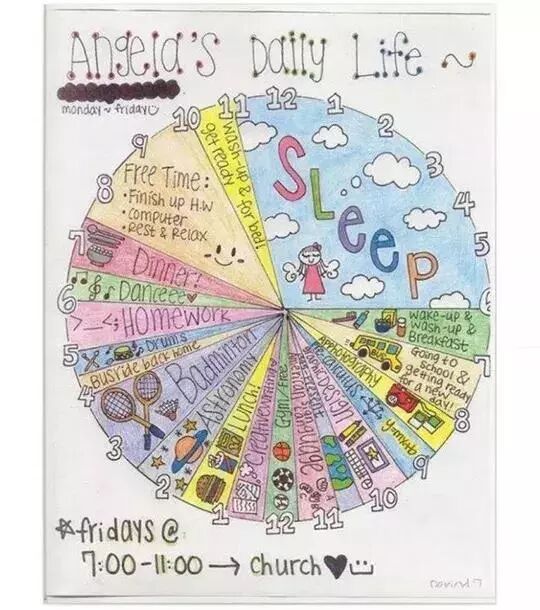 Angela's Daily Life ~
monday ~ friday
12
1
2
3
4
5
6
7
8
9
10
11
12
1
2
3
4
5
6
7
8
9
10
11
SLeep
wake-up &
wash-up &
Breakfast
Going to
school &
getting ready
for a new
day!
photography
DESIGN
American Sign language
Gym/Free
creative writing
Lunch!
Astronomy
Badminton
Busride back home
Drums
>_<; Homework
Danceee♥
Dinner!
Free Time:
• Finish up H.W
• computer
• Rest & Relax
wash-up &
get ready for bed!
☆ fridays @
7:00-11:00 → church ♥